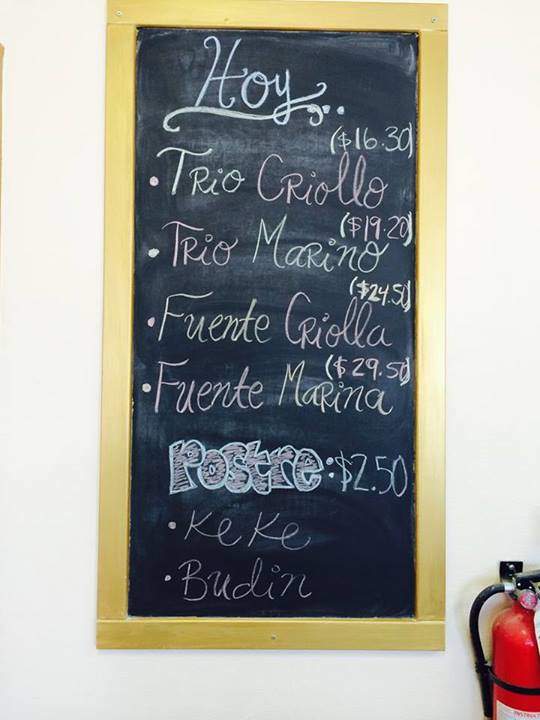 Hoy...
($16.30)
• Trio Criollo
($19.20)
• Trio Marino
($24.50)
• Fuente Criolla
($29.50)
• Fuente Marina
Postre: $2.50
• Keke
• Budin